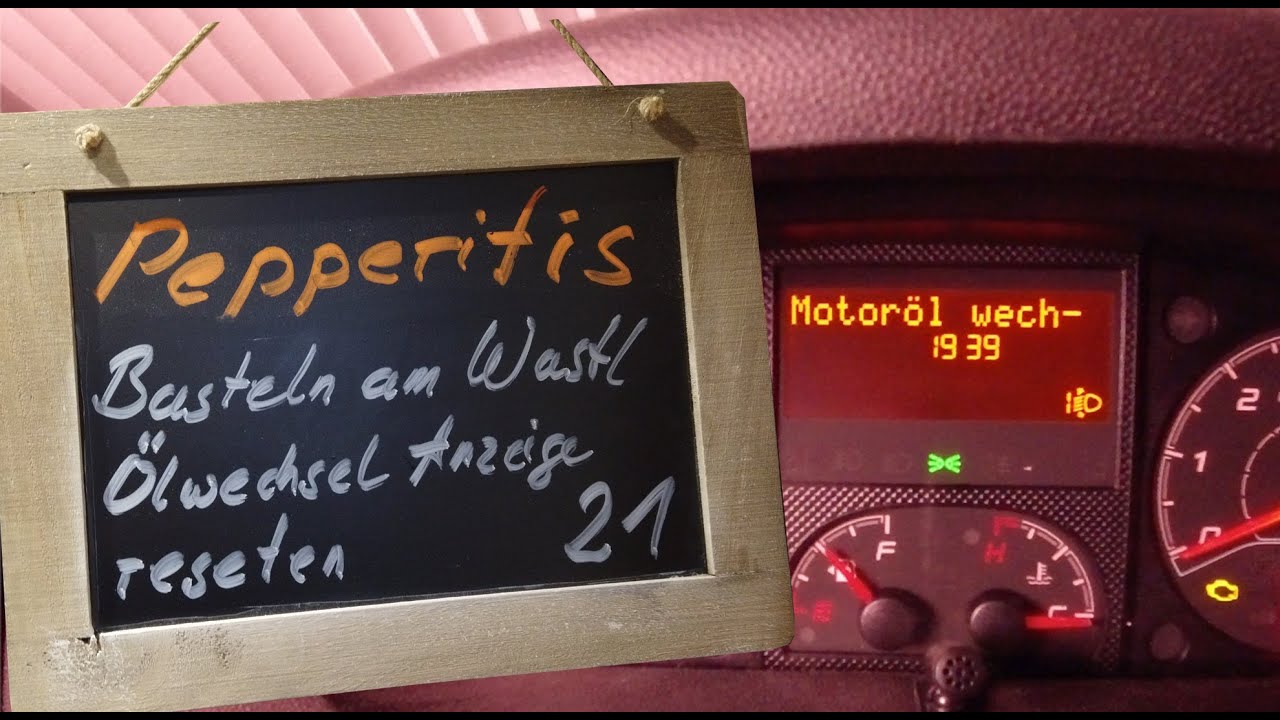 Pepperitis
Basteln am Wastl
Ölwechsel Anzeige
reseten
21
Motoröl wech-
19 39
1
F
H
C
2
1
0